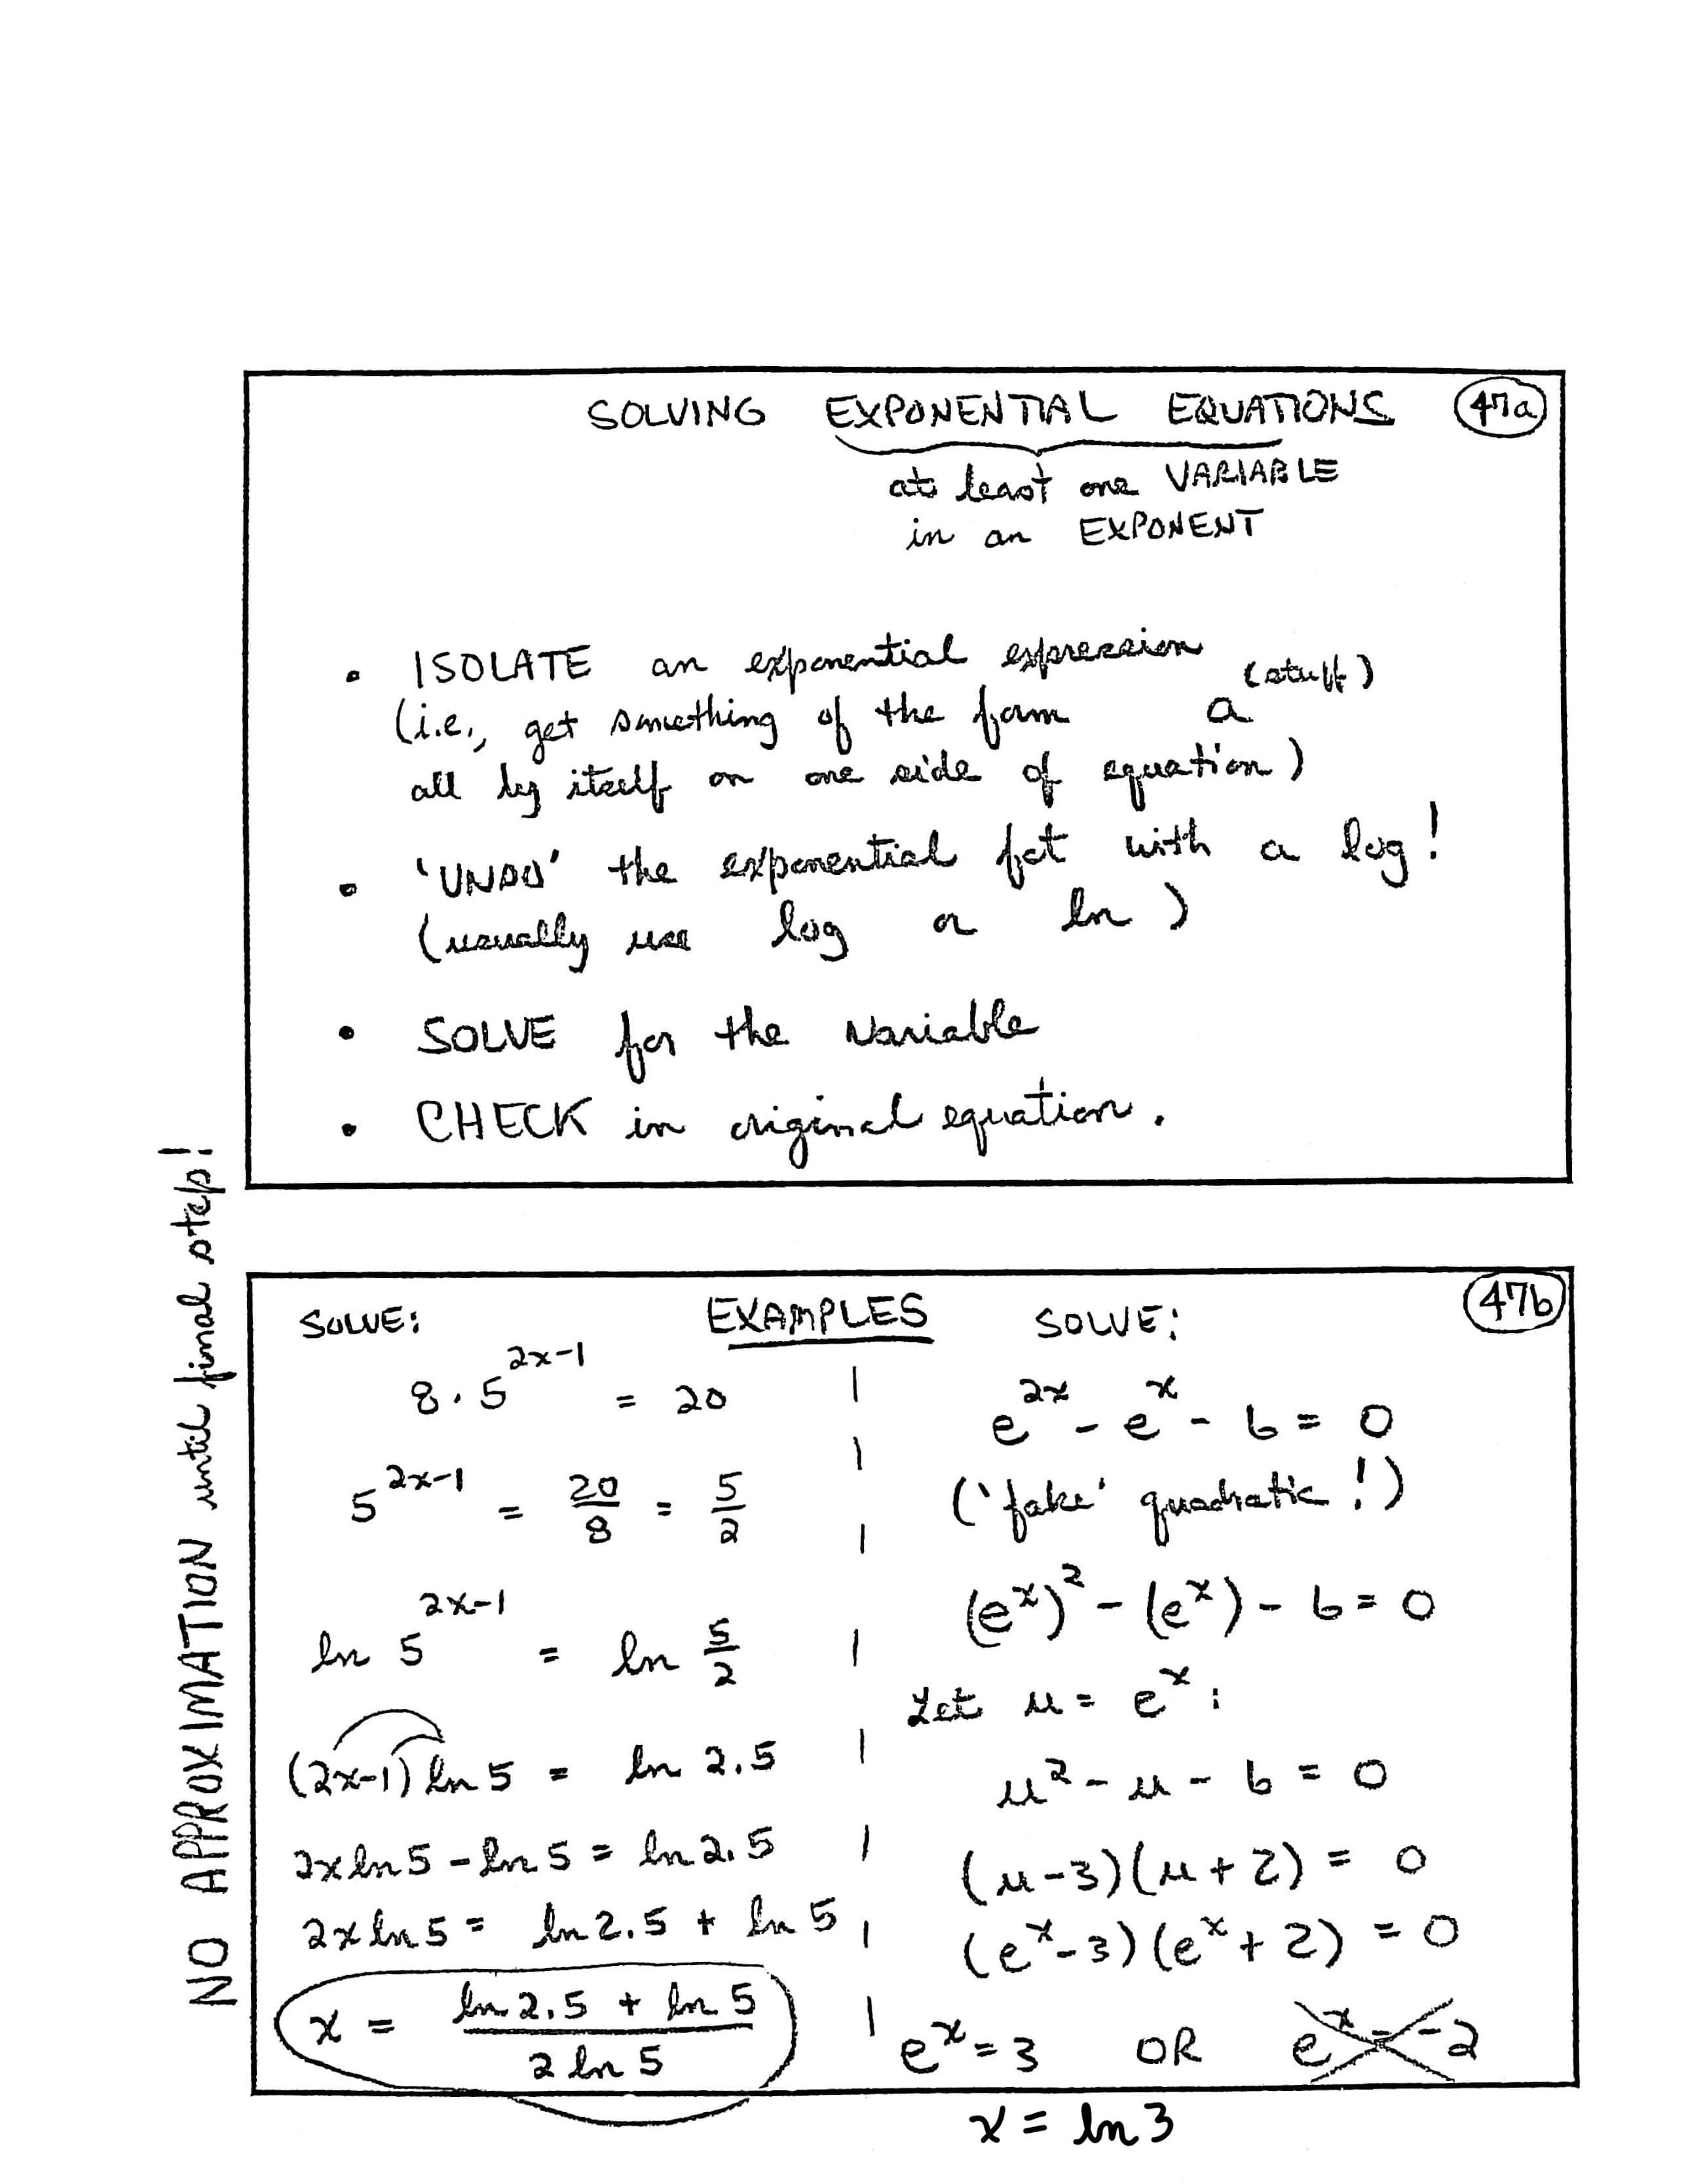 SOLVING EXPONENTIAL EQUATIONS 47a
at least one VARIABLE
in an EXPONENT
• ISOLATE an exponential expression
(i.e., get something of the form a^(stuff)
all by itself on one side of equation)
• 'UNDO' the exponential fct with a log!
(usually use log or ln)
• SOLVE for the variable
• CHECK in original equation.
NO APPROXIMATION until final step!
EXAMPLES 47b
SOLVE:
8 · 5^(2x-1) = 20
5^(2x-1) = 20/8 = 5/2
ln 5^(2x-1) = ln 5/2
(2x-1) ln 5 = ln 2.5
2x ln 5 - ln 5 = ln 2.5
2x ln 5 = ln 2.5 + ln 5
x = (ln 2.5 + ln 5)/(2 ln 5)
SOLVE:
e^(2x) - e^x - 6 = 0
('fake' quadratic!)
(e^x)^2 - (e^x) - 6 = 0
Let u = e^x :
u^2 - u - 6 = 0
(u-3)(u+2) = 0
(e^x-3)(e^x+2) = 0
e^x = 3 OR e^x = -2
x = ln 3